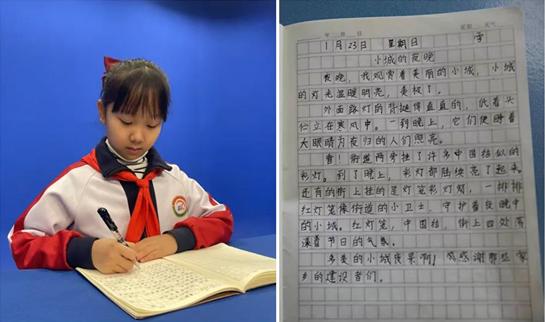 1月23日 星期日 雪
小城的夜晚
夜晚，我观赏着美丽的小城，小城
的灯光温暖明亮，美极了。
外面路灯的背挺得直直的，低着头
伫立在寒风中。一到晚上，它们便睁着
大眼睛为夜归的人们照亮。
看！街道两旁挂了许多中国结似的
彩灯。到了晚上，彩灯都陆续亮了起来。
还有的街上挂的是灯笼彩灯，一排排
红灯笼像街道的小卫士，守护着夜晚中
的小城。红灯笼，中国结，街上四处弥
漫着节日的气氛。
多美的小城夜景啊！感谢那些家
乡的建设者们。